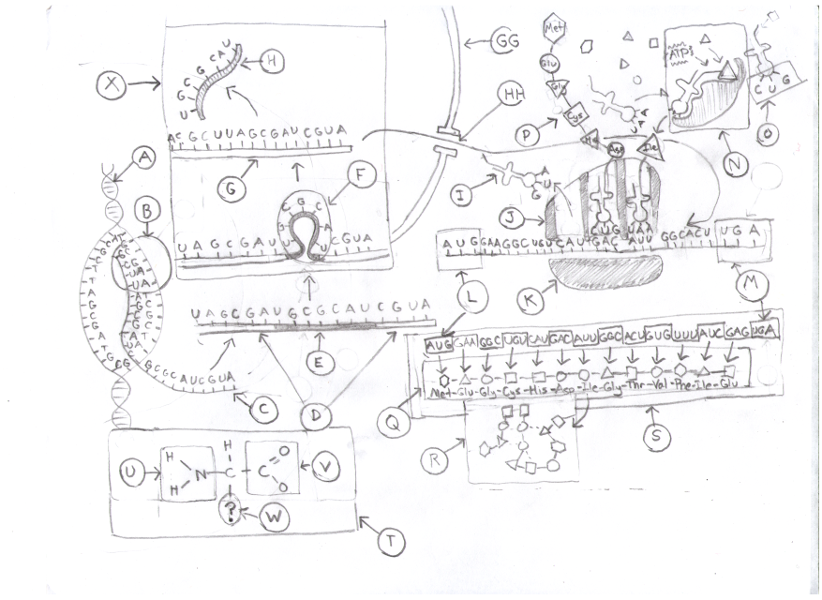 GG
HH
X
H
U G C G C A U
A C G C U U A G C G A U C G U A
G
F
G C G C A
U A G C G A U U U C G U A
A
B
U A G C G A U G C G C A U C G U A
E
D
G C G C A U C G U A
C
Met
Glu
Gly
Cys
His
Asp
Ile
P
ATPs
N
C U G
O
I
A U G
U A
J
A U G G A A G G C U G U C A U G A C A U U G G C A C U U G A
K
L
M
AUG GAA GGC UGU CAU GAC AUU GGC ACU GUG UUU AUC GAG UGA
Met-Glu-Gly-Cys-His-Asp-Ile-Gly-Thr-Val-Phe-Ile-Glu
Q
S
R
U
H
H
N
H
C
?
C
O
O
V
W
T